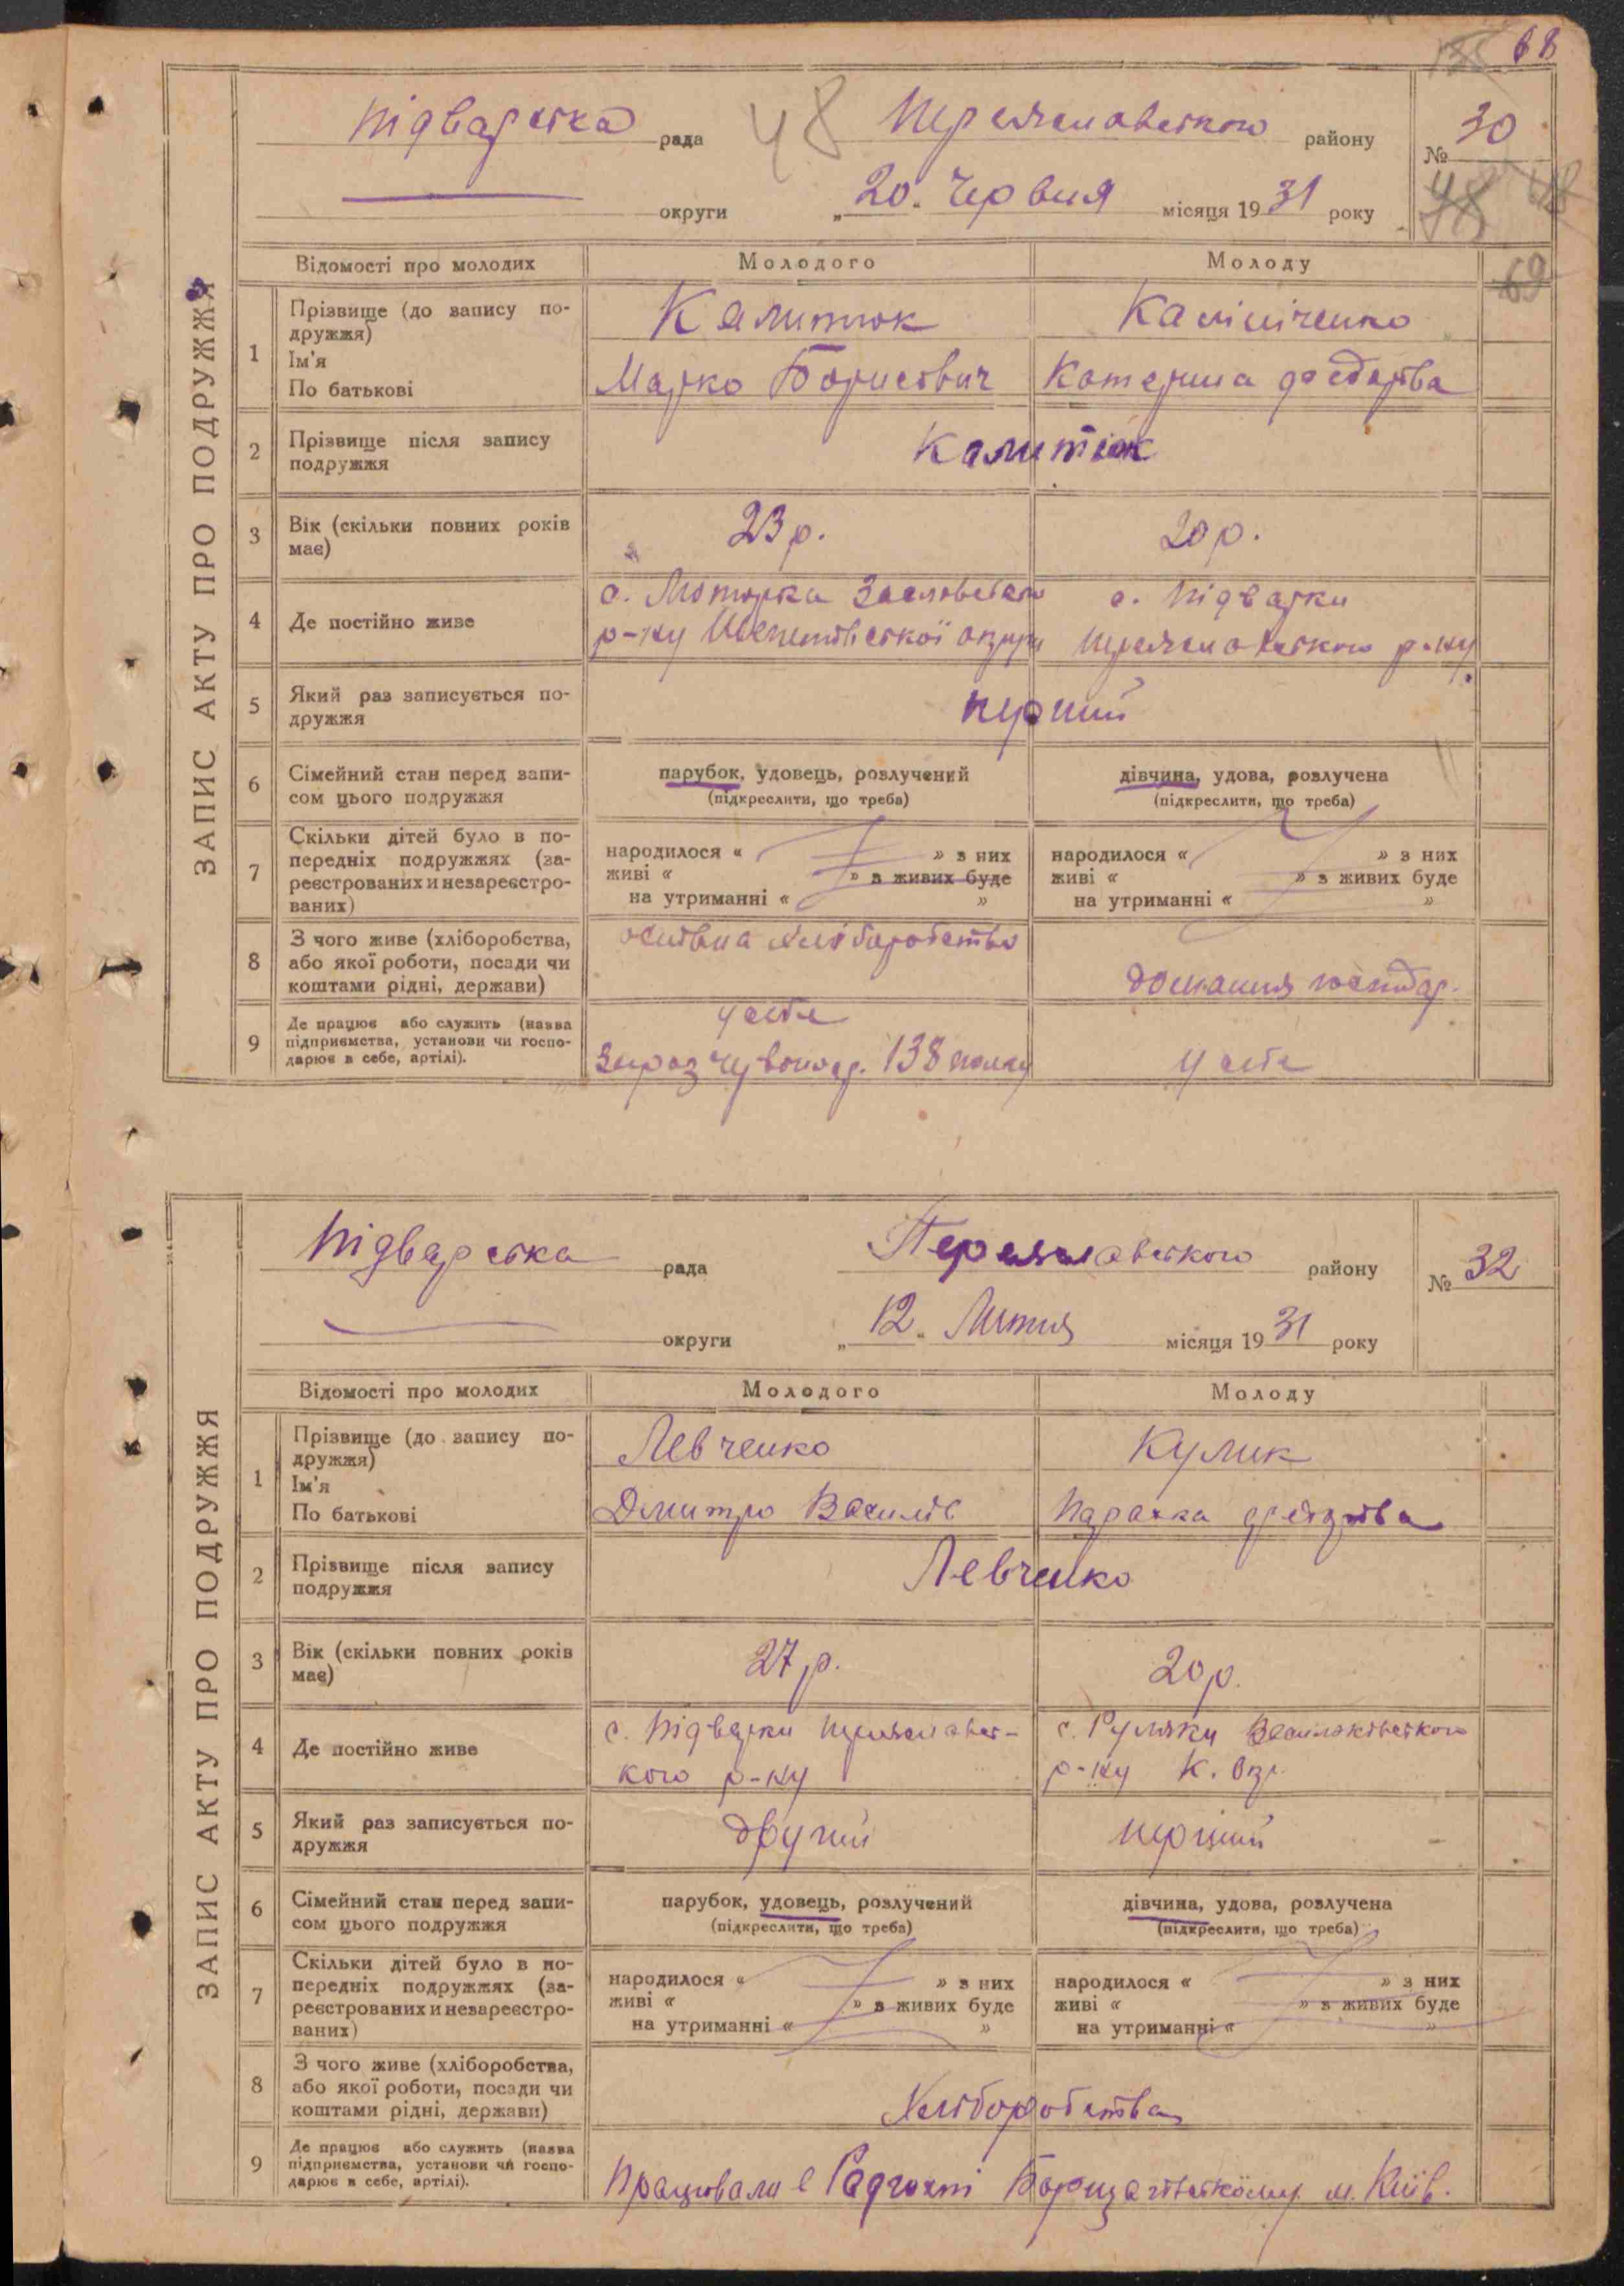 68
Підварська рада 48 Переяславського району № 30
округи „20." Червня місяця 1931 року 48
69
ЗАПИС АКТУ ПРО ПОДРУЖЖЯ
Відомості про молодих Молодого Молоду
1 Прізвище (до запису по-
дружжя)
Ім'я
По батькові
Калитюк Калініченко
Марко Борисович Катерина Федорівна
2 Прізвище після запису
подружжя
Калитюк
3 Вік (скільки повних років
має)
23 р. 20 р.
4 Де постійно живе
с. с. Підварки
р-ну Шепетівської округи Переяславського р-ну
5 Який раз записується по-
дружжя
перший
6 Сімейний стан перед запи-
сом цього подружжя
парубок, удовець, розлучений дівчина, удова, розлучена
(підкреслити, що треба) (підкреслити, що треба)
7 Скільки дітей було в по-
передніх подружжях (за-
реєстрованих и незареєстро-
ваних)
народилося « » з них народилося « » з них
живі « » з живих буде живі « » з живих буде
на утриманні « » на утриманні « »
8 З чого живе (хліборобства,
або якої роботи, посади чи
коштами рідні, держави)
хліборобство
домашня господар.
9 Де працює або служить (назва
підприємства, установи чи госпо-
дарює в себе, артілі).
у себе
зараз червоноар. 138 полку у себе
Підварська рада Переяславського району № 32
округи „12." Липня місяця 1931 року
ЗАПИС АКТУ ПРО ПОДРУЖЖЯ
Відомості про молодих Молодого Молоду
1 Прізвище (до запису по-
дружжя)
Ім'я
По батькові
Левченко Кулик
Дмитро Василів Параска
2 Прізвище після запису
подружжя
Левченко
3 Вік (скільки повних років
має)
27 р. 20 р.
4 Де постійно живе
с. Підварки Переяславсь- с. Гуляки Васильківського
кого р-ну р-ну К. окр.
5 Який раз записується по-
дружжя
другий перший
6 Сімейний стан перед запи-
сом цього подружжя
парубок, удовець, розлучений дівчина, удова, розлучена
(підкреслити, що треба) (підкреслити, що треба)
7 Скільки дітей було в по-
передніх подружжях (за-
реєстрованих и незареєстро-
ваних)
народилося « » з них народилося « » з них
живі « » з живих буде живі « » з живих буде
на утриманні « » на утриманні « »
8 З чого живе (хліборобства,
або якої роботи, посади чи
коштами рідні, держави)
Хліборобства
9 Де працює або служить (назва
підприємства, установи чи госпо-
дарює в себе, артілі).
Працювали в Радгоспі Борщагівському м. Київ.